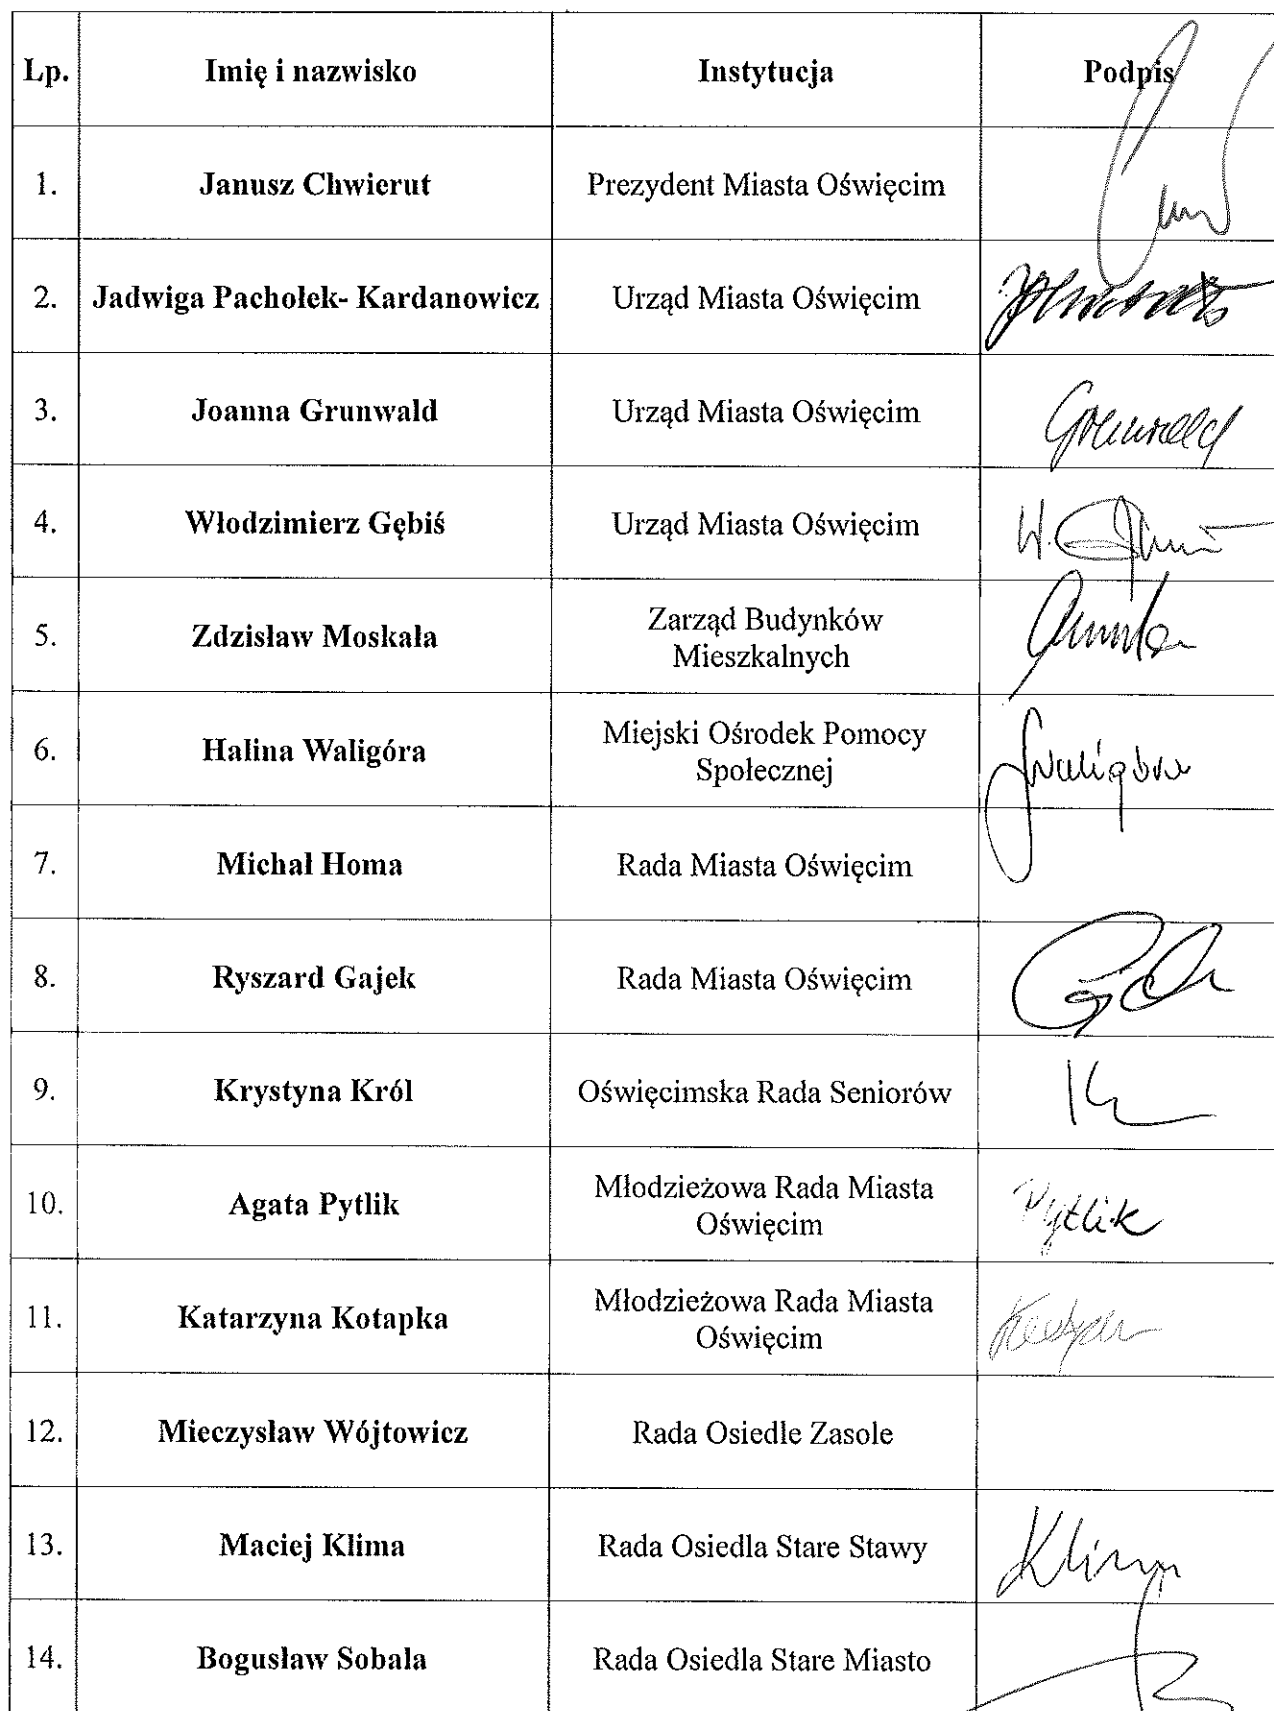 Lp. Imię i nazwisko Instytucja Podpis
1. Janusz Chwierut Prezydent Miasta Oświęcim
2. Jadwiga Pachołek- Kardanowicz Urząd Miasta Oświęcim
3. Joanna Grunwald Urząd Miasta Oświęcim Grunwald
4. Włodzimierz Gębiś Urząd Miasta Oświęcim W.
5. Zdzisław Moskała Zarząd Budynków
Mieszkalnych
6. Halina Waligóra Miejski Ośrodek Pomocy
Społecznej Waligóra
7. Michał Homa Rada Miasta Oświęcim
8. Ryszard Gajek Rada Miasta Oświęcim
9. Krystyna Król Oświęcimska Rada Seniorów
10. Agata Pytlik Młodzieżowa Rada Miasta
Oświęcim Pytlik
11. Katarzyna Kotapka Młodzieżowa Rada Miasta
Oświęcim
12. Mieczysław Wójtowicz Rada Osiedle Zasole
13. Maciej Klima Rada Osiedla Stare Stawy Klima
14. Bogusław Sobala Rada Osiedla Stare Miasto